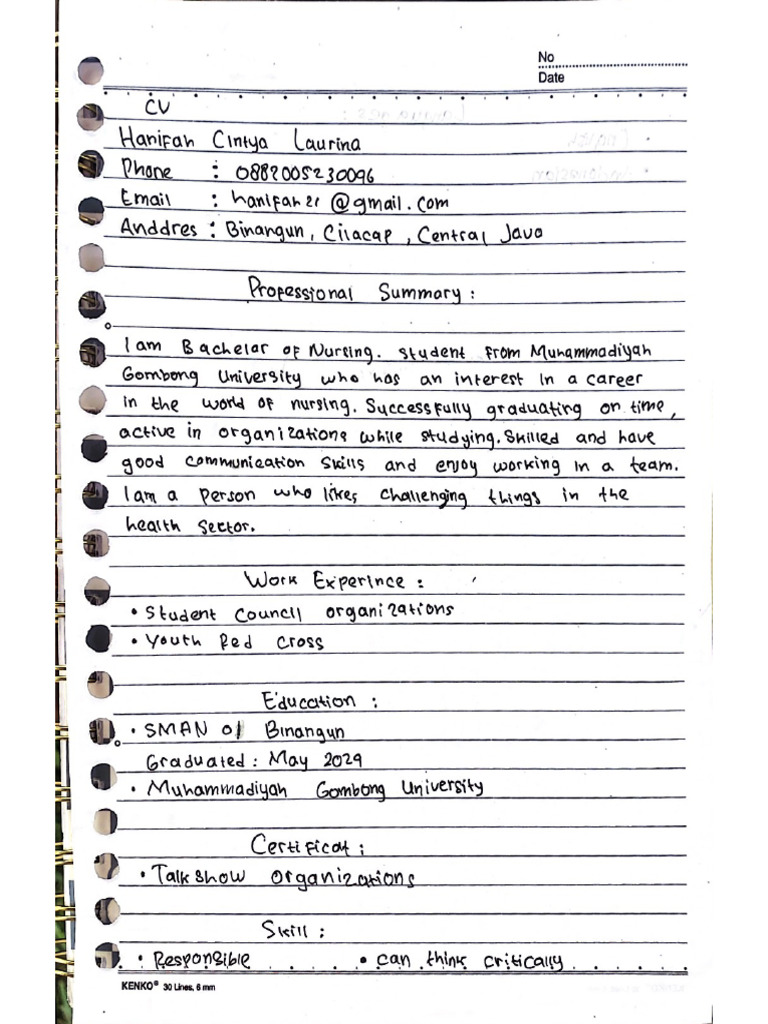 No
Date
CV
Hanifah Cintya Laurina
Phone : 0882005230096
Email : hanifah21@gmail.com
Anddres : Binangun, Cilacap, Central Java
Professional Summary :
I am Bachelor of Nursing. student from Muhammadiyah
Gombong University who has an interest in a career
in the world of nursing. Successfully graduating on time,
active in organizations while studying. Skilled and have
good communication skills and enjoy working in a team.
I am a person who likes challenging things in the
health sector.
Work Experince :
• Student Council organizations
• Youth Red Cross
Education :
• SMAN 01 Binangun
Graduated : May 2024
• Muhammadiyah Gombong University
Certificat :
• Talkshow organizations
Skill :
• Responsible • can think critically
KENKO® 30 Lines, 6 mm